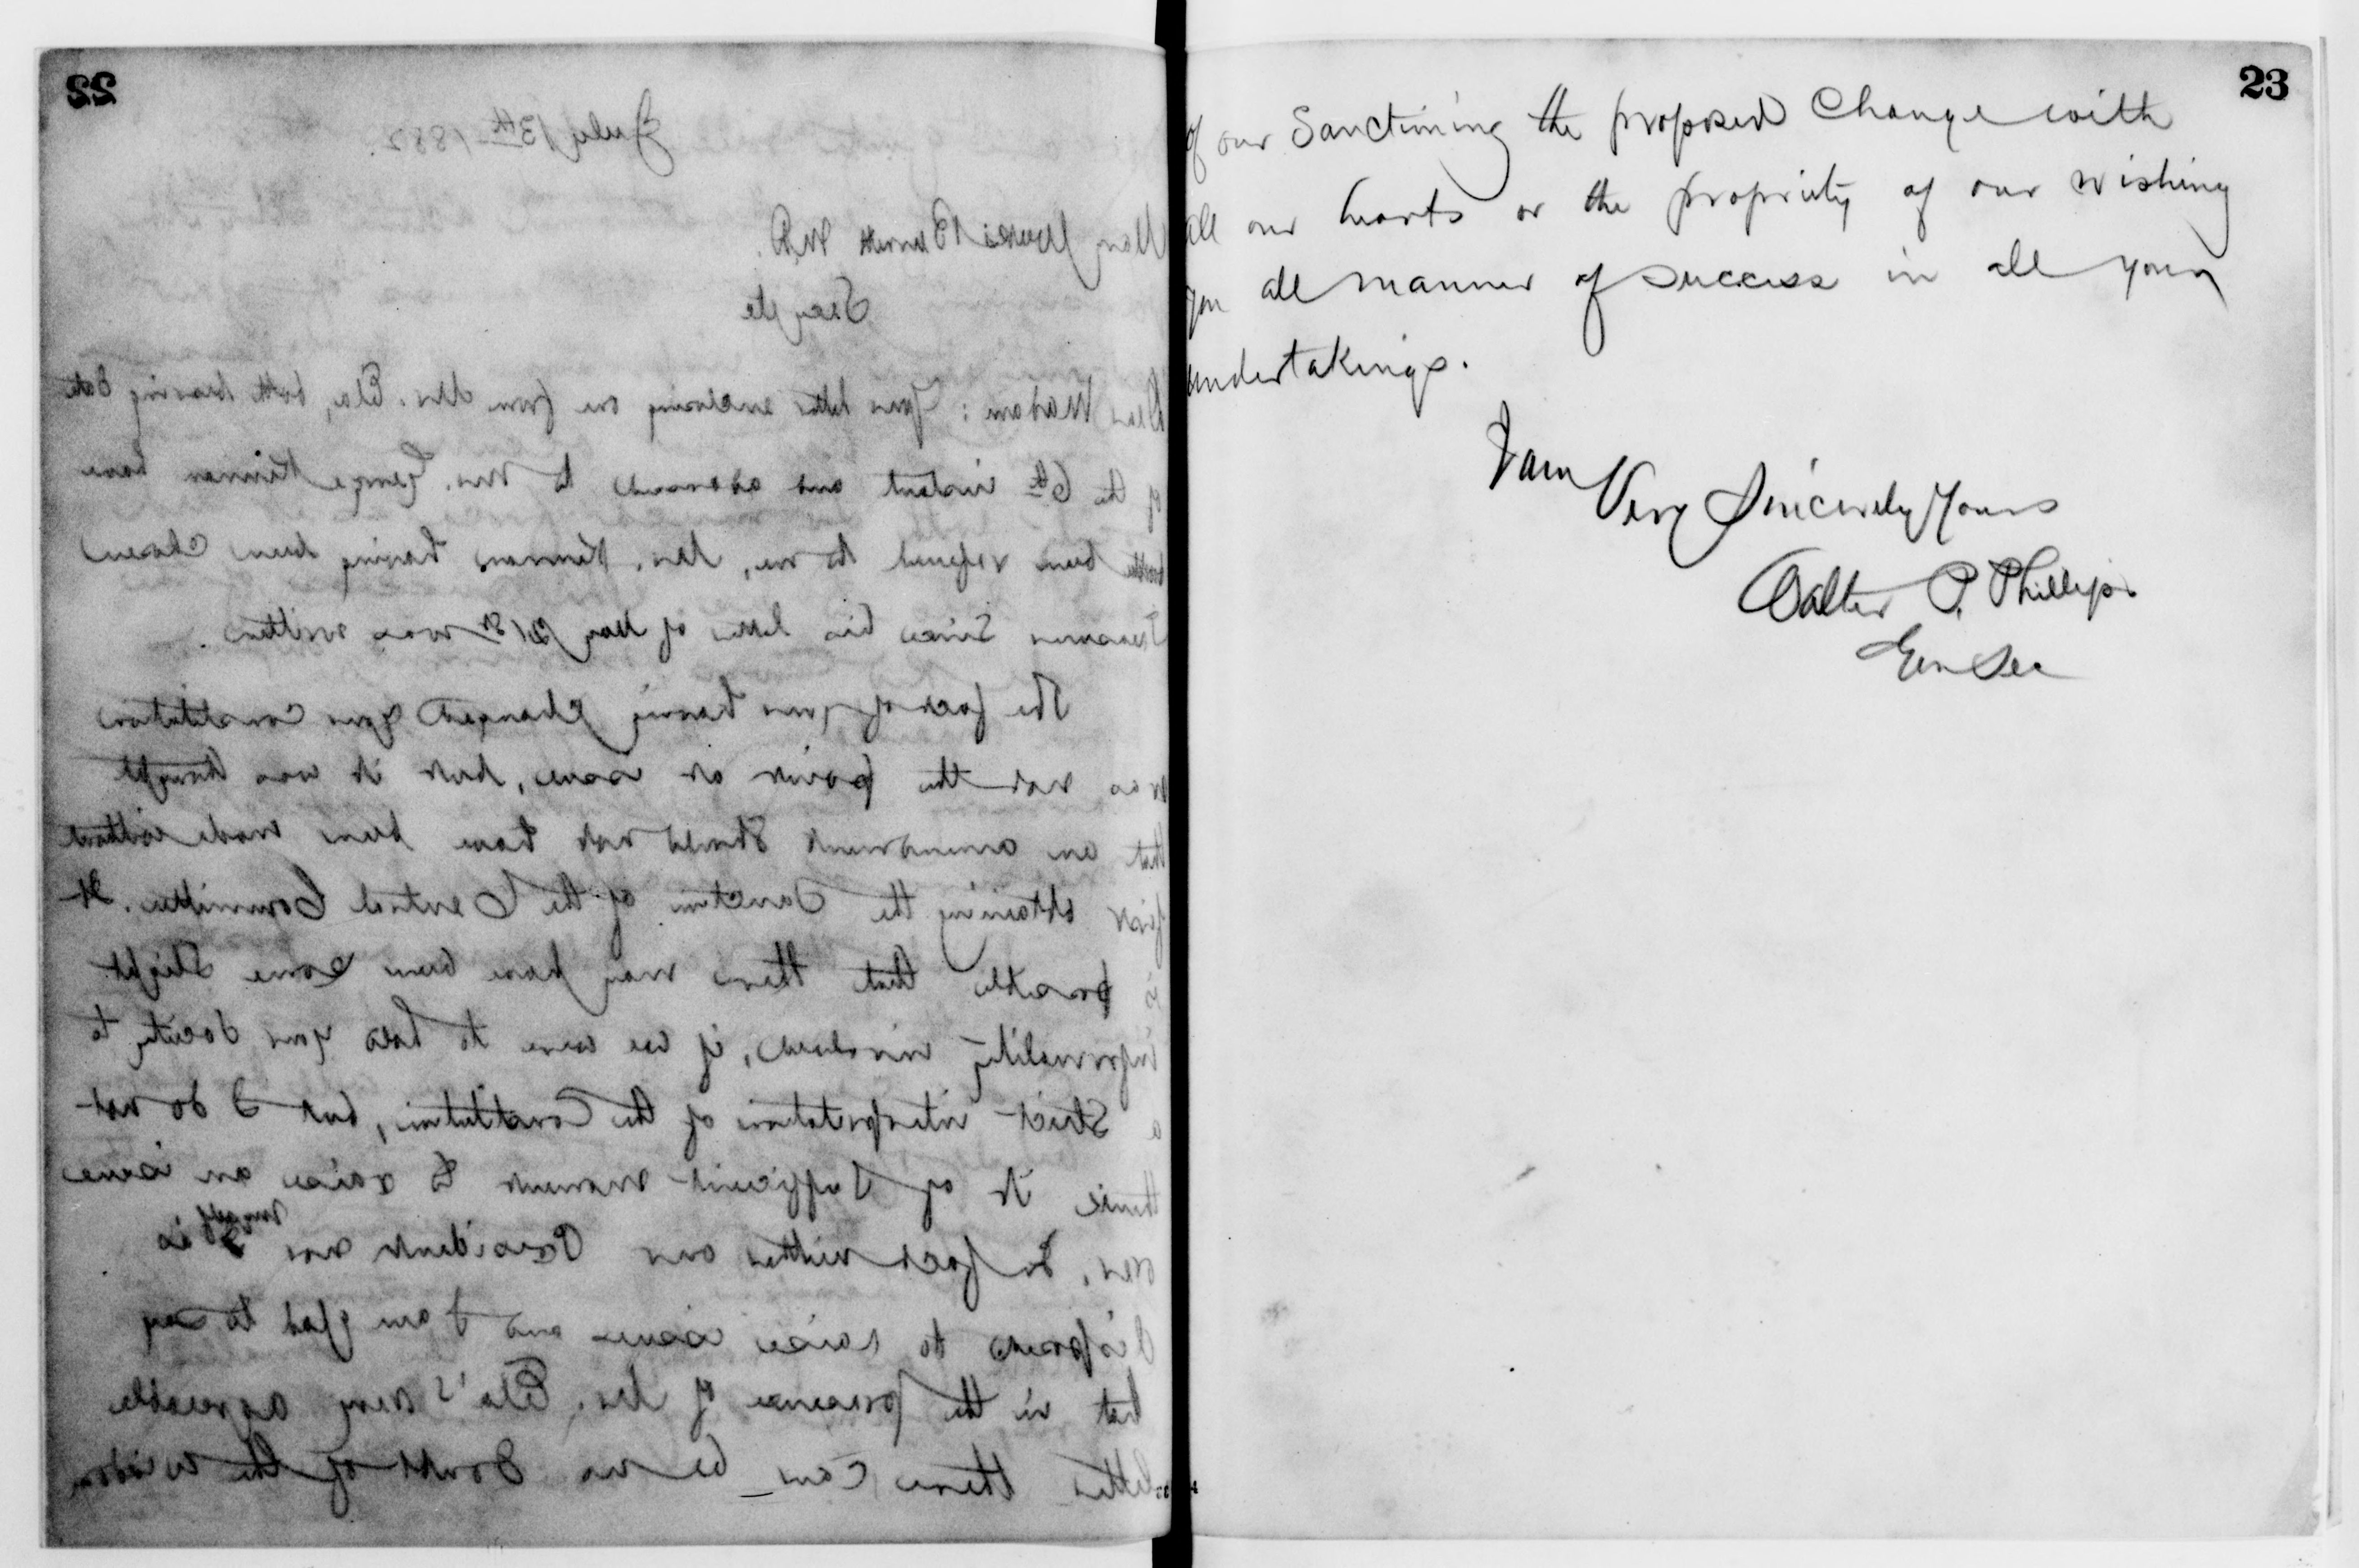 22
July 13th 1882.
Mary Weeks Burnett M.D.
Secy etc
Dear Madam: Your letter enclosing one from Mrs. Ela, both bearing date
of the 6th instant and addressed to Mr. George Kennan have
both been referred to me, Mr. Kennan having been chosen
Treasurer since his letter of May 31st was written.
The fact of your having changed your constitution
was not the point at issue, but it was thought
that an amendment should not have been made without
first obtaining the Sanction of the Central Committee. It
is possible that there may have been some slight
informality involved, if we were to hold your Society to
a Strict interpretation of the Constitution, but I do not
think it of sufficient moment to raise an issue
over. In fact neither our President nor myself is
disposed to raise issues and I am glad to say
that in the presence of Mrs. Ela's very agreeable
letter there can be no doubt of the wisdom
23
of our Sanctioning the proposed Change with
all our hearts or the propriety of our wishing
you all manner of success in all your
undertakings.
I am
Very Sincerely Yours
Walter P. Phillips
Gen Sec